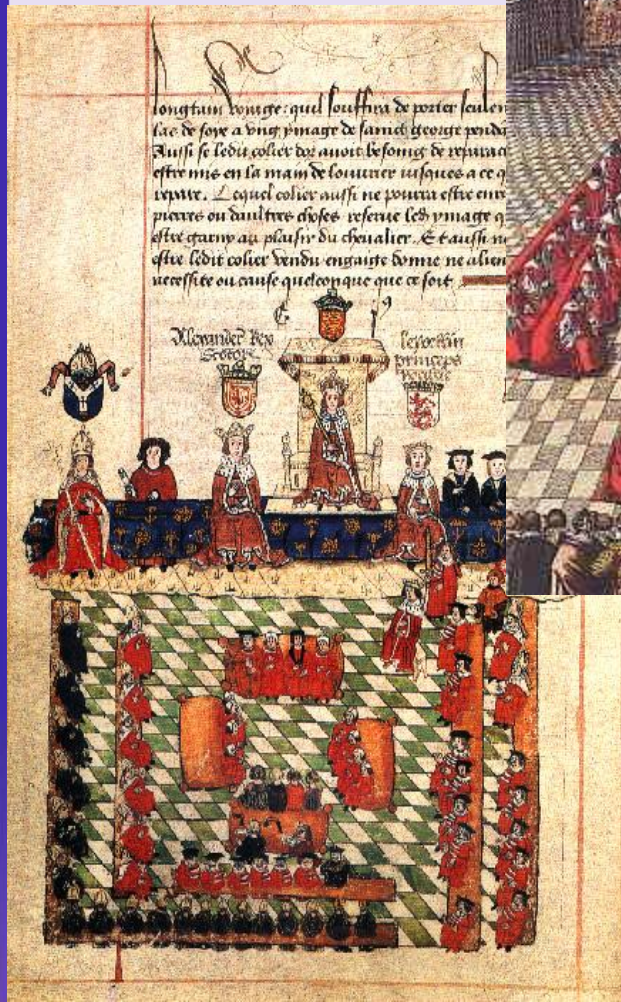 longtain voiage: quil souffira de porter seulen
lac de soye a vng ymage de sainct george penda
Aussi se ledit colier dor auoit besoing de reparac
estre mis en la main de louurier iusques a ce q
repare. Lequel colier aussi ne pourra estre
pierres ou daultres choses reserue led ymage q
estre garny au plaisir du cheualier. Et aussi n
estre ledit colier vendu engaige donne ne alien
necessite ou cause quelconque que ce soit
Alexander Rex
princeps